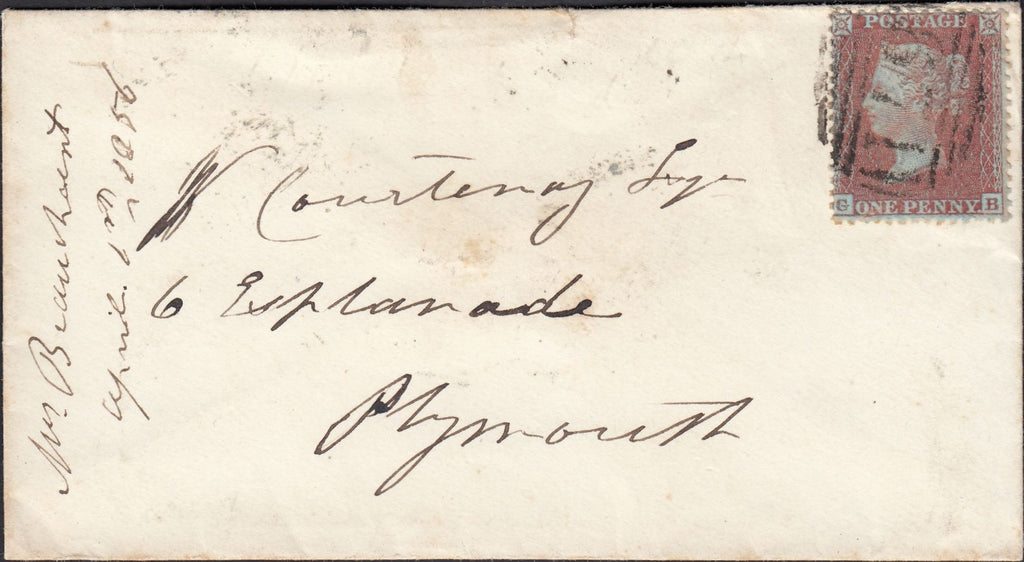 POSTAGE
G ONE PENNY B
W Courtenay Esqr
6 Esplanade
Plymouth
Mrs. Beauchamp
april 1st 1856